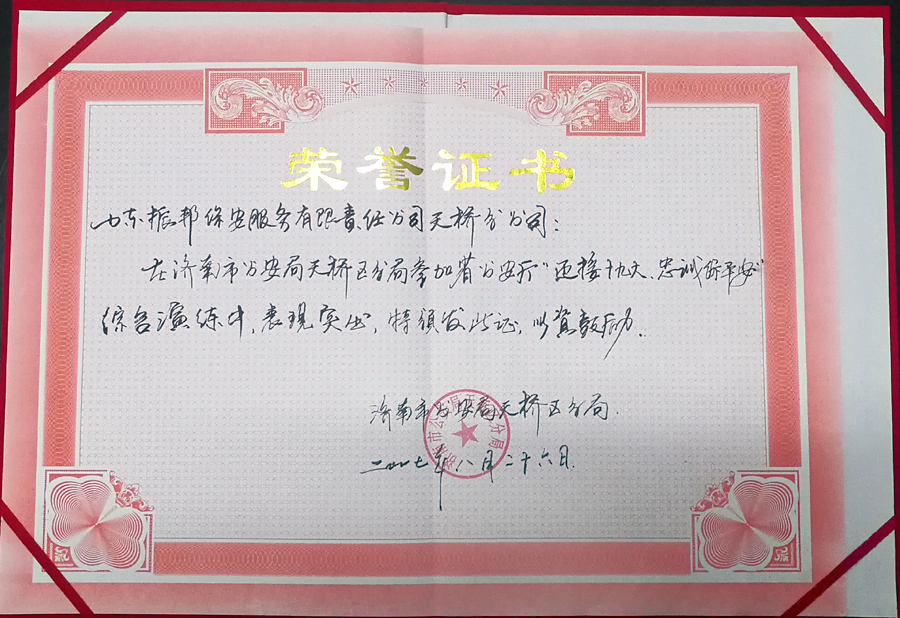 荣誉证书
山东振邦保安服务有限责任公司天桥分公司：
在济南市公安局天桥区分局参加省公安厅“迎接十九大、忠诚保平安”
综合演练中，表现突出，特颁发此证，以资鼓励．
济南市公安局天桥区分局．
二〇一七年八月二十六日．